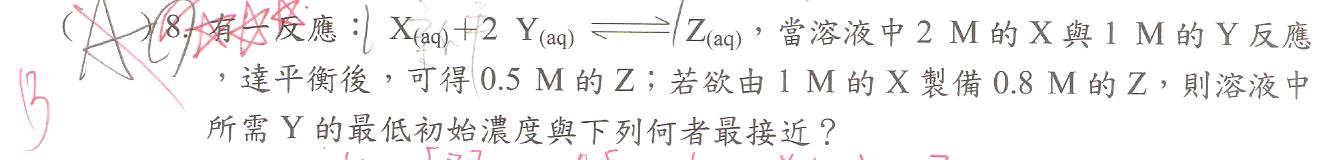 ( A )8. 有一反應：X(aq)+2 Y(aq) ⇌ Z(aq)，當溶液中 2 M 的 X 與 1 M 的 Y 反應
，達平衡後，可得 0.5 M 的 Z；若欲由 1 M 的 X 製備 0.8 M 的 Z，則溶液中
B
所需 Y 的最低初始濃度與下列何者最接近？